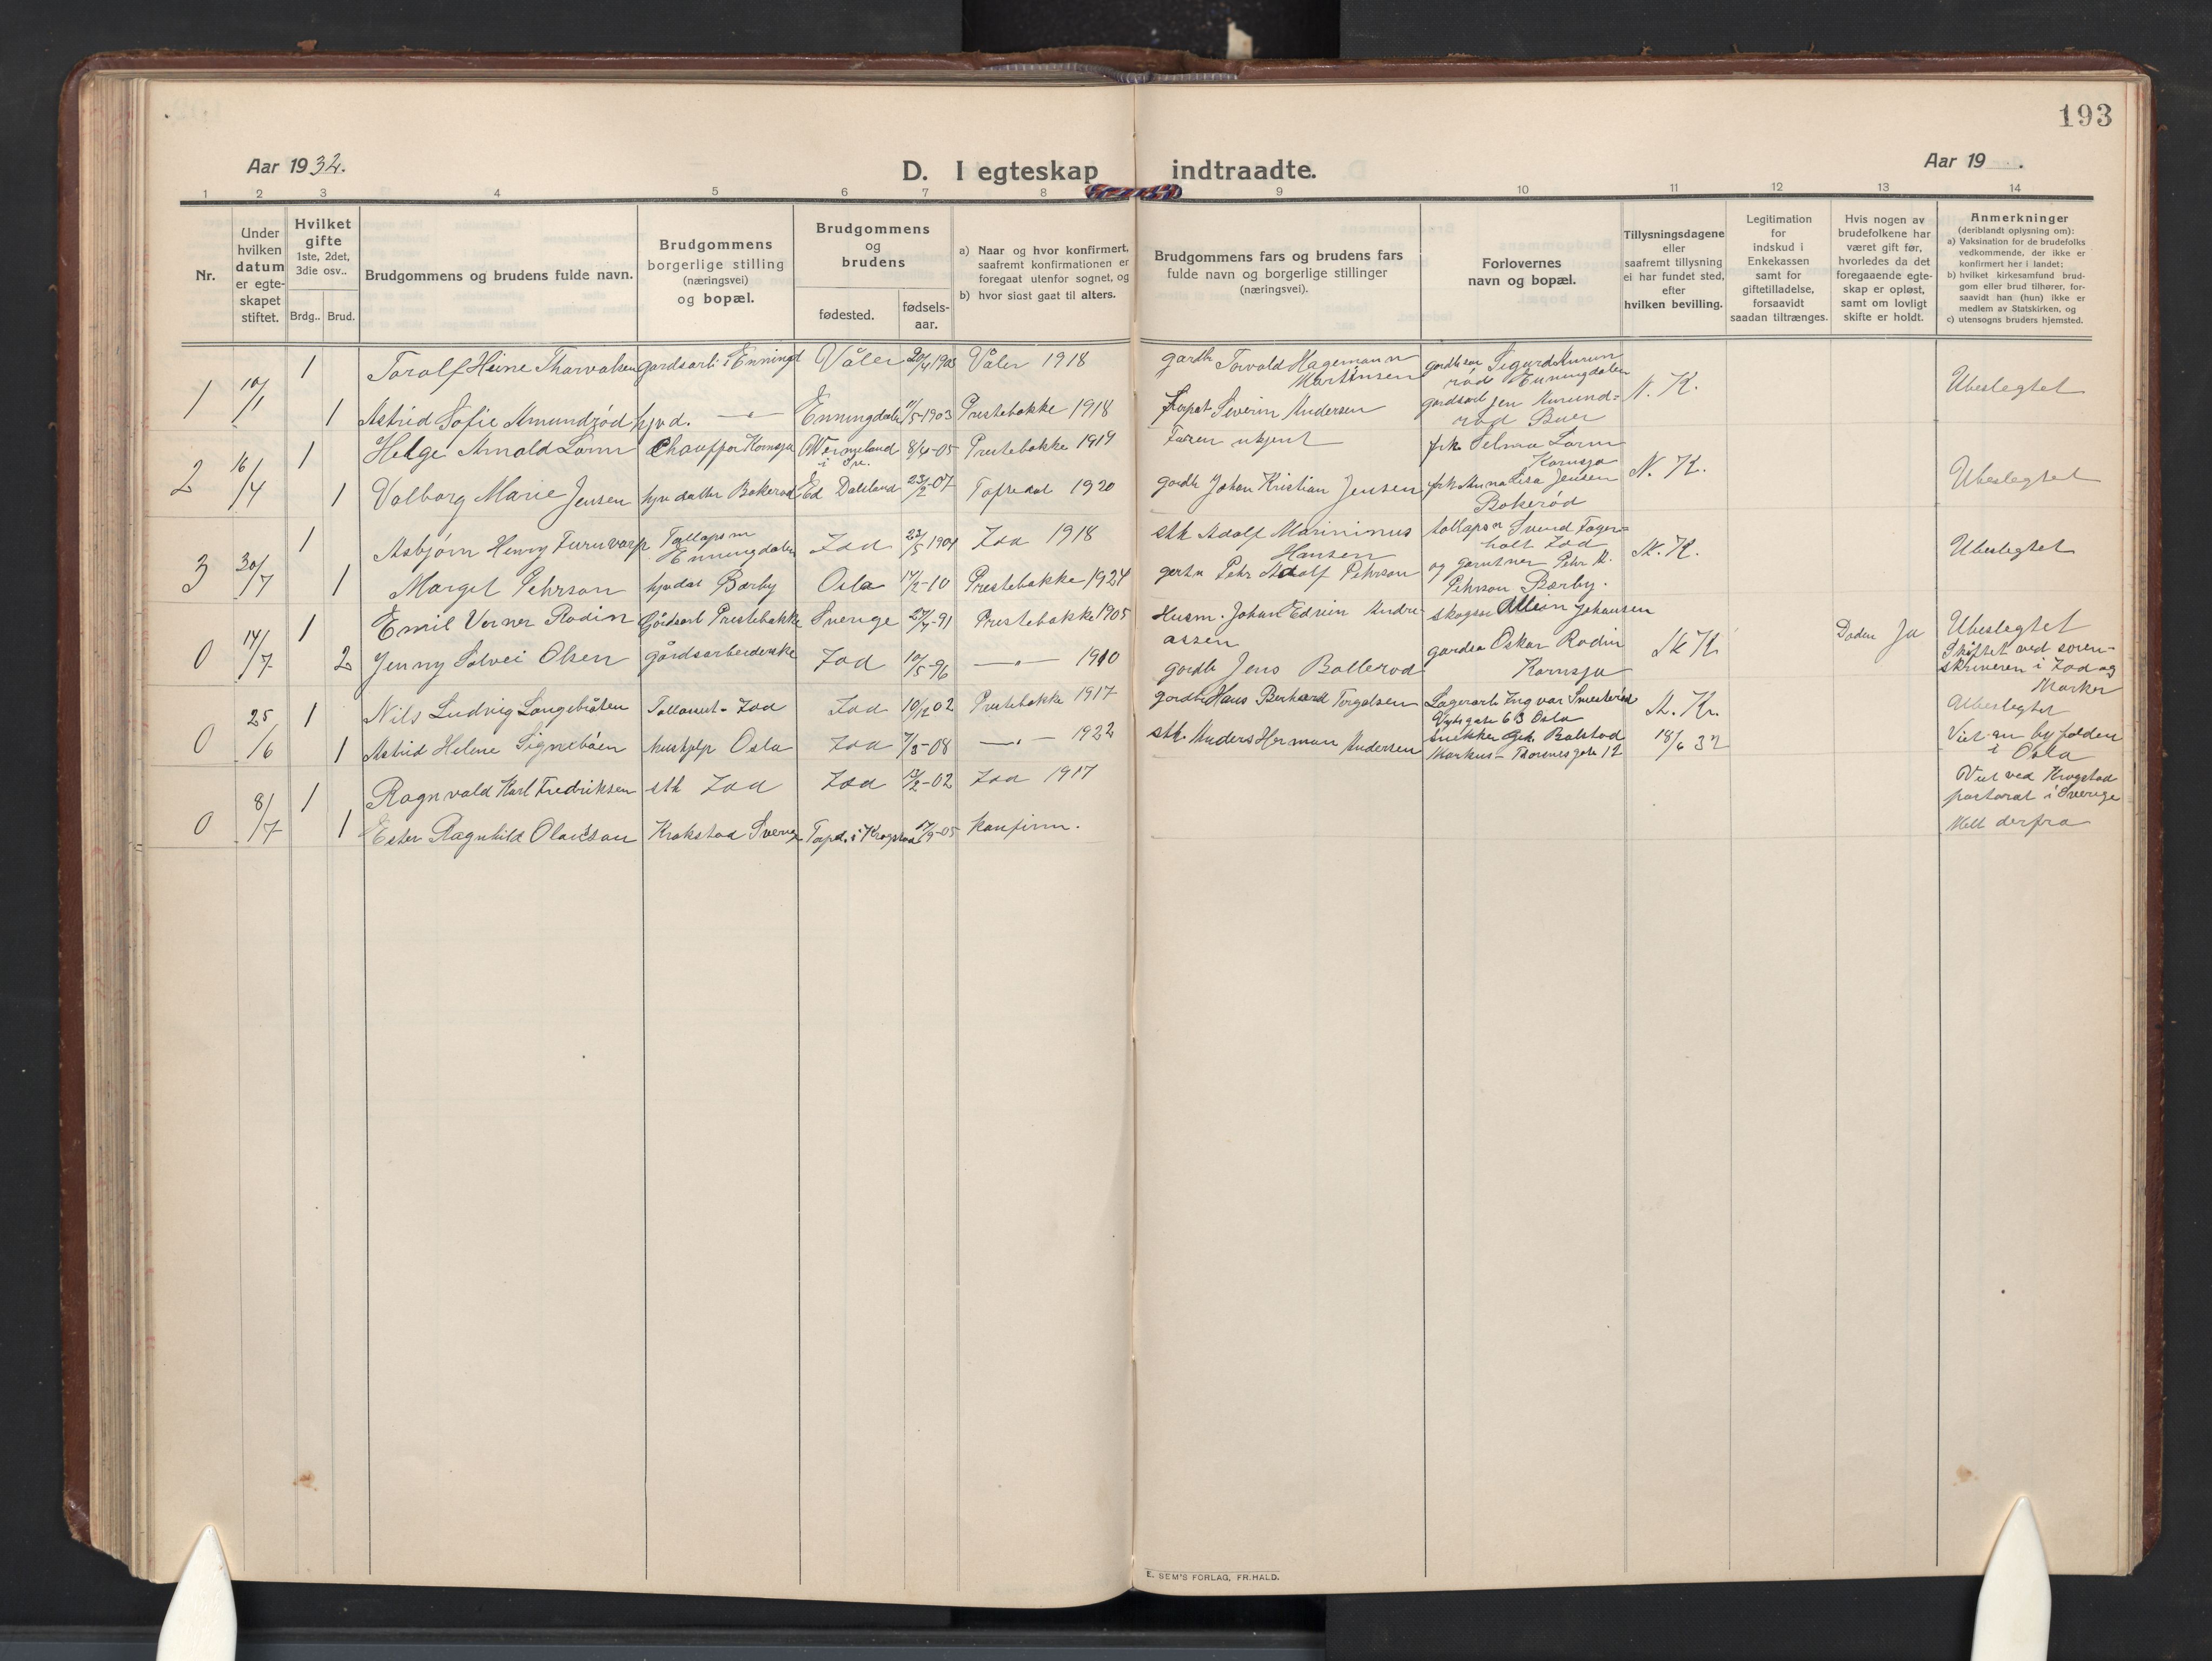 193
Aar 1932.
D. I egteskap indtraadte.
Aar 19 .
1 2 3 4 5 6 7 8 9 10 11 12 13 14
Nr.
Under
hvilken
datum
er egte-
skapet
stiftet.
Hvilket
gifte
1ste, 2det,
3die osv..
Brdg.. Brud.
Brudgommens og brudens fulde navn.
Brudgommens
borgerlige stilling
(næringsvei)
og bopæl.
Brudgommens
og
brudens
fødested.
fødsels-
aar.
a) Naar og hvor konfirmert,
saafremt konfirmationen er
foregaat utenfor sognet, og
b) hvor sidst gaat til alters.
Brudgommens fars og brudens fars
fulde navn og borgerlige stillinger
(næringsvei).
Forlovernes
navn og bopæl.
Tillysningsdagene
eller
saafremt tillysning
ei har fundet sted,
efter
hvilken bevilling.
Legitimation
for
indskud i
Enkekassen
samt for
giftetilladelse,
forsaavidt
saadan tiltrænges.
Hvis nogen av
brudefolkene har
været gift før,
hvorledes da det
foregaaende egte-
skap er opløst,
samt om lovligt
skifte er holdt.
Anmerkninger
(deriblandt oplysning om):
a) Vaksination for de brudefolks
vedkommende, der ikke er
konfirmert her i landet;
b) hvilket kirkesamfund brud-
gom eller brud tilhører, for-
saavidt han (hun) ikke er
medlem av Statskirken, og
c) utensogns bruders hjemsted.
1 10/1 1 Toralf Heine Thorvalsen gardsarb i Enningd Våler 20/4 1903 Våler 1918 gardbr Torvald Hagemann Martinsen gardbr Sigurd Amunrød Enningdalen N. K. Ubeslegtet
1 Astrid Sofie Amundrød hjvd. — " — Enningdalen 11/5 1903 Prestebakke 1918 Severin Andersen gardsarb Jen Amundrød Buer
2 16/4 1 Helge Arnold Lorin Chauffør Kornsjø Wermeland i Sv. 8/4-05 Prestebakke 1919 Faren ukjent frk Selma Lorin Kornsjø N. K. Ubeslegtet
1 Valborg Marie Jensen hjv datter Bokerød Ed Dalsland 23/2-07 1920 gardbr Johan Kristian Jensen frk Anna Lisa Jensen Bokerød
3 30/7 1 Asbjørn Henry Furuvarp Tollopsm Enningdalen Idd 23/5 1901 Idd 1918 stk Adolf Marinimus Hansen tollopsn Svend Fagerholt Idd N. K. Ubeslegtet
1 Margit Pehrson hjv dat Bærby Oslo 14/2-10 Prestebakke 1924 gartn Pehr Adolf Pehrson og gartner Pehr A. Pehrson Bærby.
0 14/7 1 Emil Verner Rodin Gårdsarb Prestebakke Sverige 27/4-91 Prestebakke 1905 Husm. Johan Edvin Andreassen Johansen N. K Døden Ja Ubeslegtet
2 Jenny Solvei Olsen gårdsarbeiderske Idd 10/5-96 — " — 1910 gardbr Jens Ballerød Oskar Rodin Kornsjø Skiftet ved sorenskriveren i Idd og Marker
0 25/6 1 Nils Ludvig Langebråten Tollassist- Idd Idd 10/12 02 Prestebakke 1917 gardbr Hans Berhard Torgalsen Lagerarb Ingvar 63 Oslo N. Kr. Ubeslegtet
1 Astrid Helene Signebøen hushjelp Oslo Idd 7/3-08 — " — 1922 stk. Anders Herman Andersen snekker Balstad Markus Thranes gate 12 18/6 32 Viet av byfolden i Oslo
0 8/7 1 Ragnvald Karl Fredriksen stk Idd Idd 13/2-02 Idd 1917 Viet ved Krogstad pastorat i Sverige
1 Ester Ragnhild Olausson Krokstad Sverige i Krogstad 17/9-05 konfirm. Meld derfra
E. SEM'S FORLAG, FR.HALD.